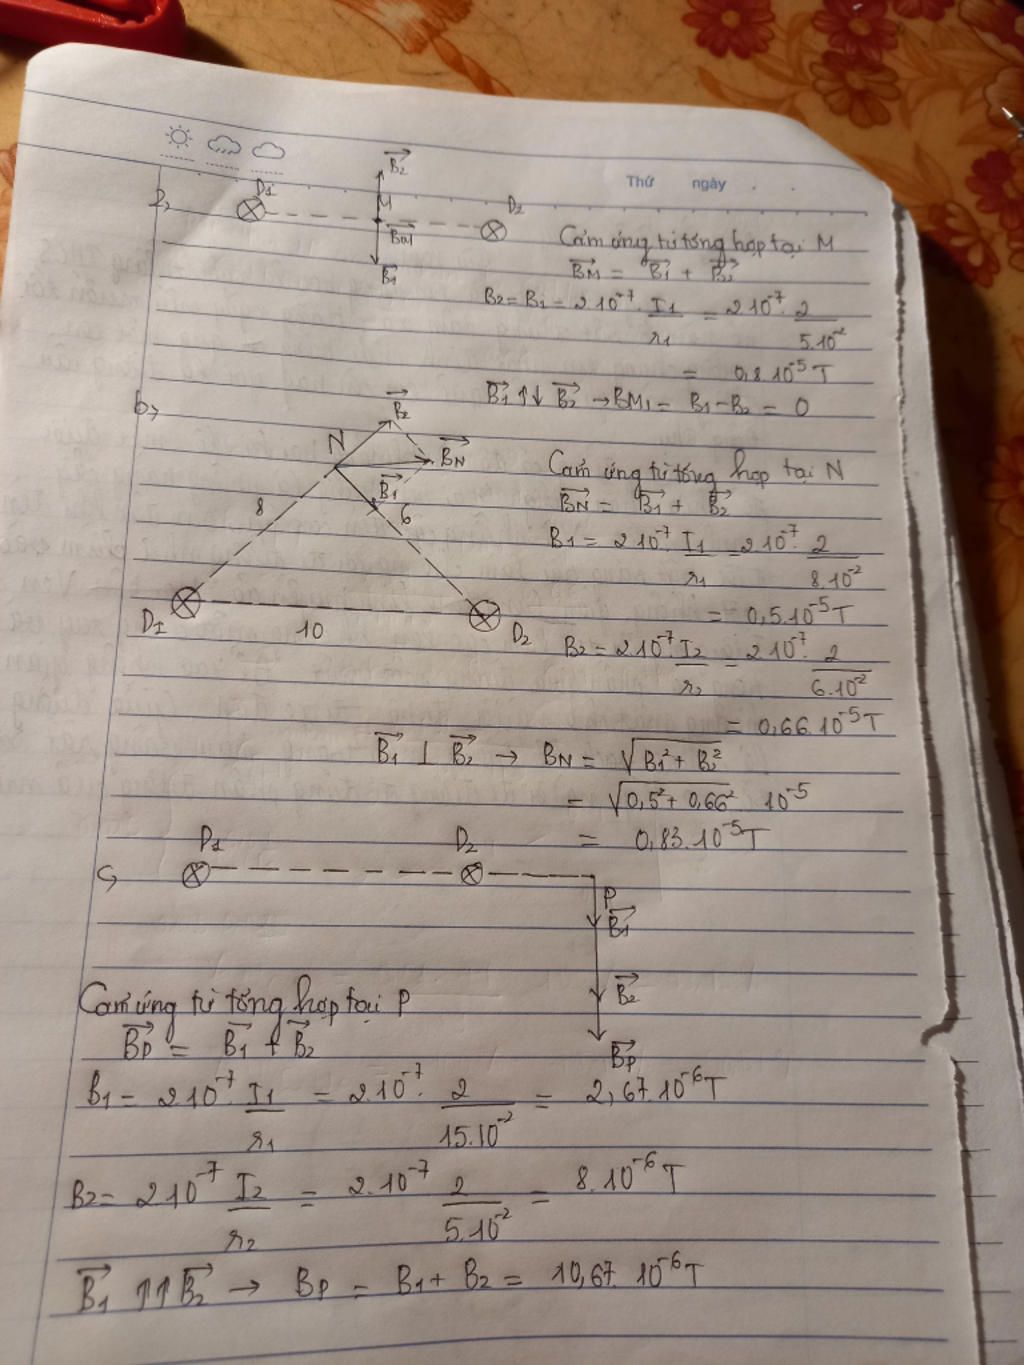 Thứ ngày . .
a, D1 M D2
B2→
BM→
B1→
Cảm ứng từ tổng hợp tại M
BM→ = B1→ + B2→
B2 = B1 = 2.10^-7. I1/r1 = 2.10^-7. 2/5.10^-2
= 0,8.10^-5 T
B1→ ↑↓ B2→ → BM1 = B1 - B2 = 0
b,
N B2→
BN→
B1→
8 6
D1 10 D2
Cảm ứng từ tổng hợp tại N
BN→ = B1→ + B2→
B1 = 2.10^-7. I1/r1 = 2.10^-7. 2/8.10^-2
= 0,5.10^-5 T
B2 = 2.10^-7. I2/r2 = 2.10^-7. 2/6.10^-2
= 0,66.10^-5 T
B1→ ⊥ B2→ → BN = √(B1² + B2²)
= √(0,5² + 0,66²) . 10^-5
= 0,83.10^-5 T
c, D1 D2 P
B1→
B2→
BP→
Cảm ứng từ tổng hợp tại P
BP→ = B1→ + B2→
B1 = 2.10^-7. I1/r1 = 2.10^-7. 2/15.10^-2 = 2,67.10^-6 T
B2 = 2.10^-7 I2/r2 = 2.10^-7 2/5.10^-2 = 8.10^-6 T
B1→ ↑↑ B2→ → BP = B1 + B2 = 10,67.10^-6 T